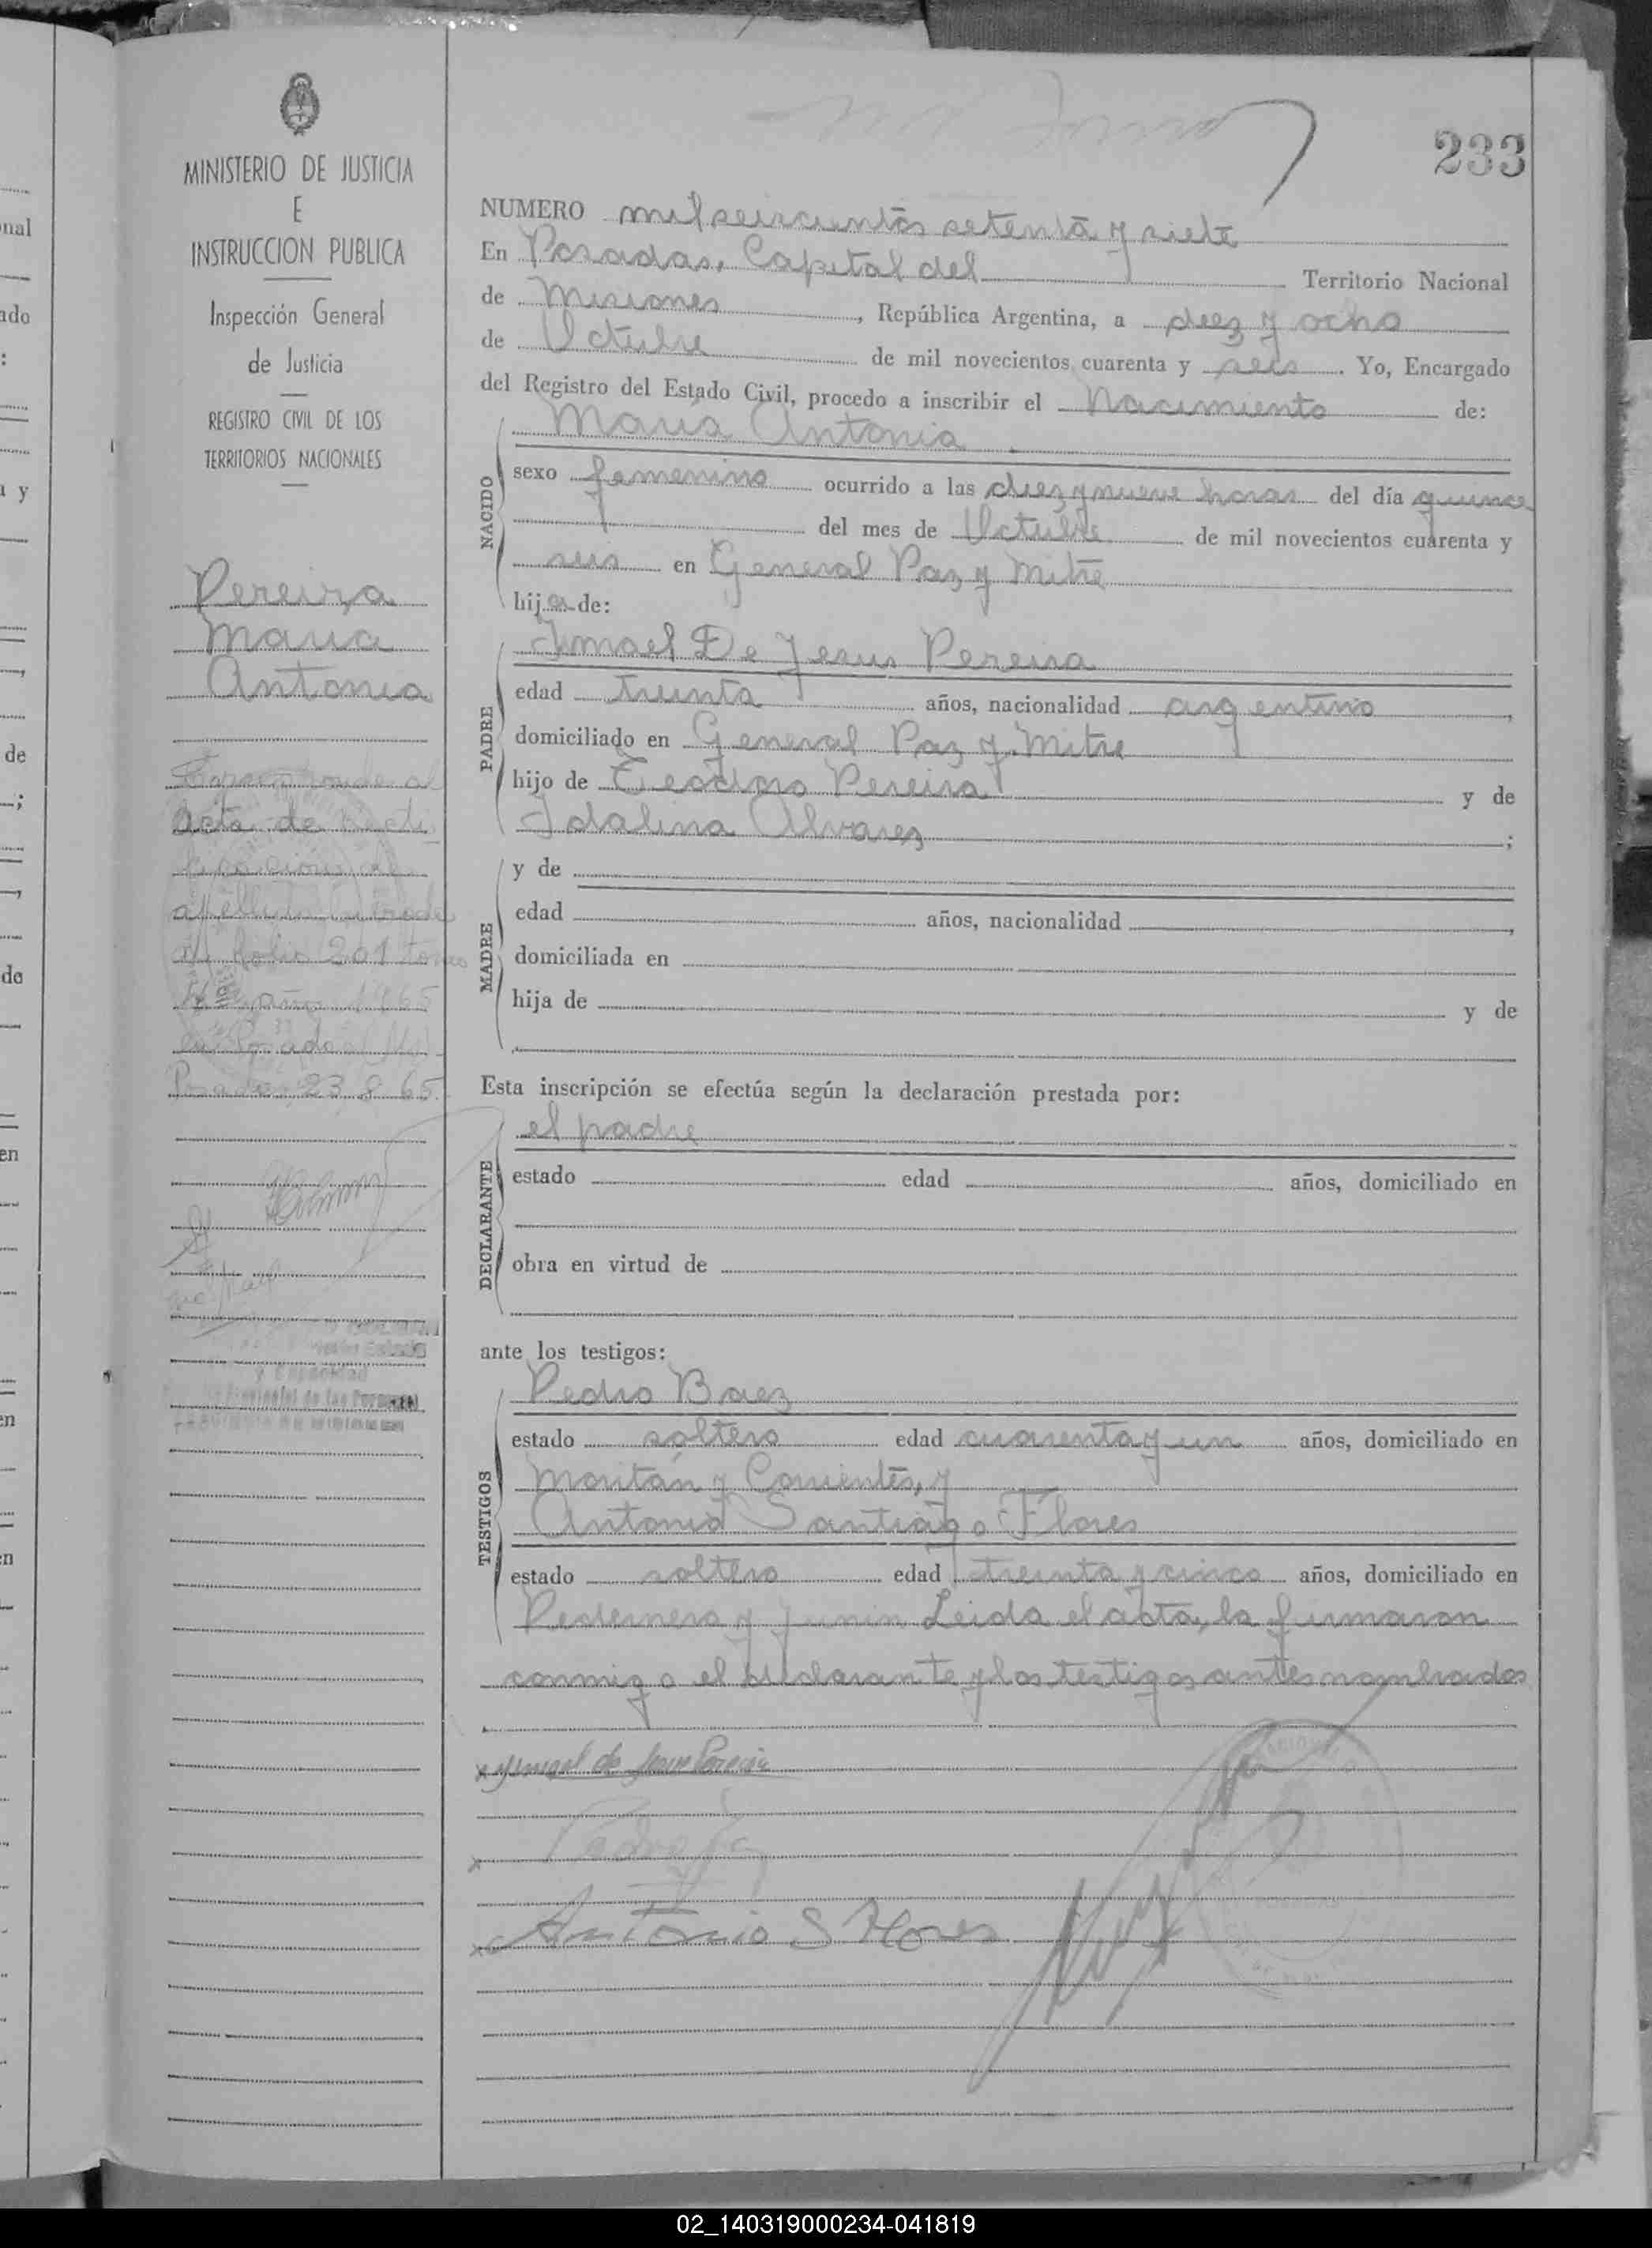 233
MINISTERIO DE JUSTICIA
E
INSTRUCCION PUBLICA
Inspección General
de Justicia
REGISTRO CIVIL DE LOS
TERRITORIOS NACIONALES
Pereira
Maria
Antonia
Corresponde al
Acta de Recti
apellido
folio 201 tomo
año 1965
Posadas 23 8 65
NUMERO mil seiscientos setenta y siete
En Posadas, Capital del Territorio Nacional
de Misiones, República Argentina, a diez y ocho
de Octubre de mil novecientos cuarenta y seis. Yo, Encargado
del Registro del Estado Civil, procedo a inscribir el Nacimiento de:
NACIDO
Maria Antonia
sexo femenino ocurrido a las diez y nueve horas del día quince
del mes de Octubre de mil novecientos cuarenta y
seis en General Paz y Mitre
hija de:
PADRE
Ismael De Jesus Pereira
edad treinta años, nacionalidad argentino,
domiciliado en General Paz y Mitre
hijo de Teodoro Pereira y de
Idalina Alvarez;
MADRE
y de
edad años, nacionalidad,
domiciliada en
hija de y de
Esta inscripción se efectúa según la declaración prestada por:
DECLARANTE
el padre
estado edad años, domiciliado en
obra en virtud de
ante los testigos:
TESTIGOS
Pedro Baez
estado soltero edad cuarenta y un años, domiciliado en
y Corrientes, y
Antonio Santiago Flores
estado soltero edad treinta y cinco años, domiciliado en
Pedernera y Junin Leida el acta, la firmaron
conmigo el declarante y los testigos antes nombrados
x Ysmael de Jesus Pereira
x Pedro
x Antonio S Flores
02_140319000234-041819